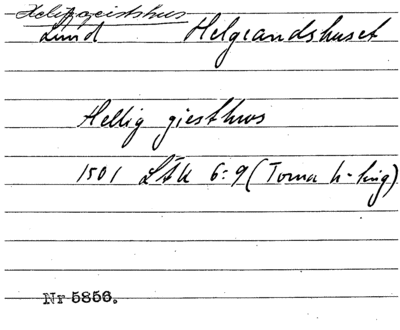 Helggeistshus
Lund Helgeandshuset
Hellig giesthws
1501 LÄU 6:9 (Torna h-ling)
Nr 5856.